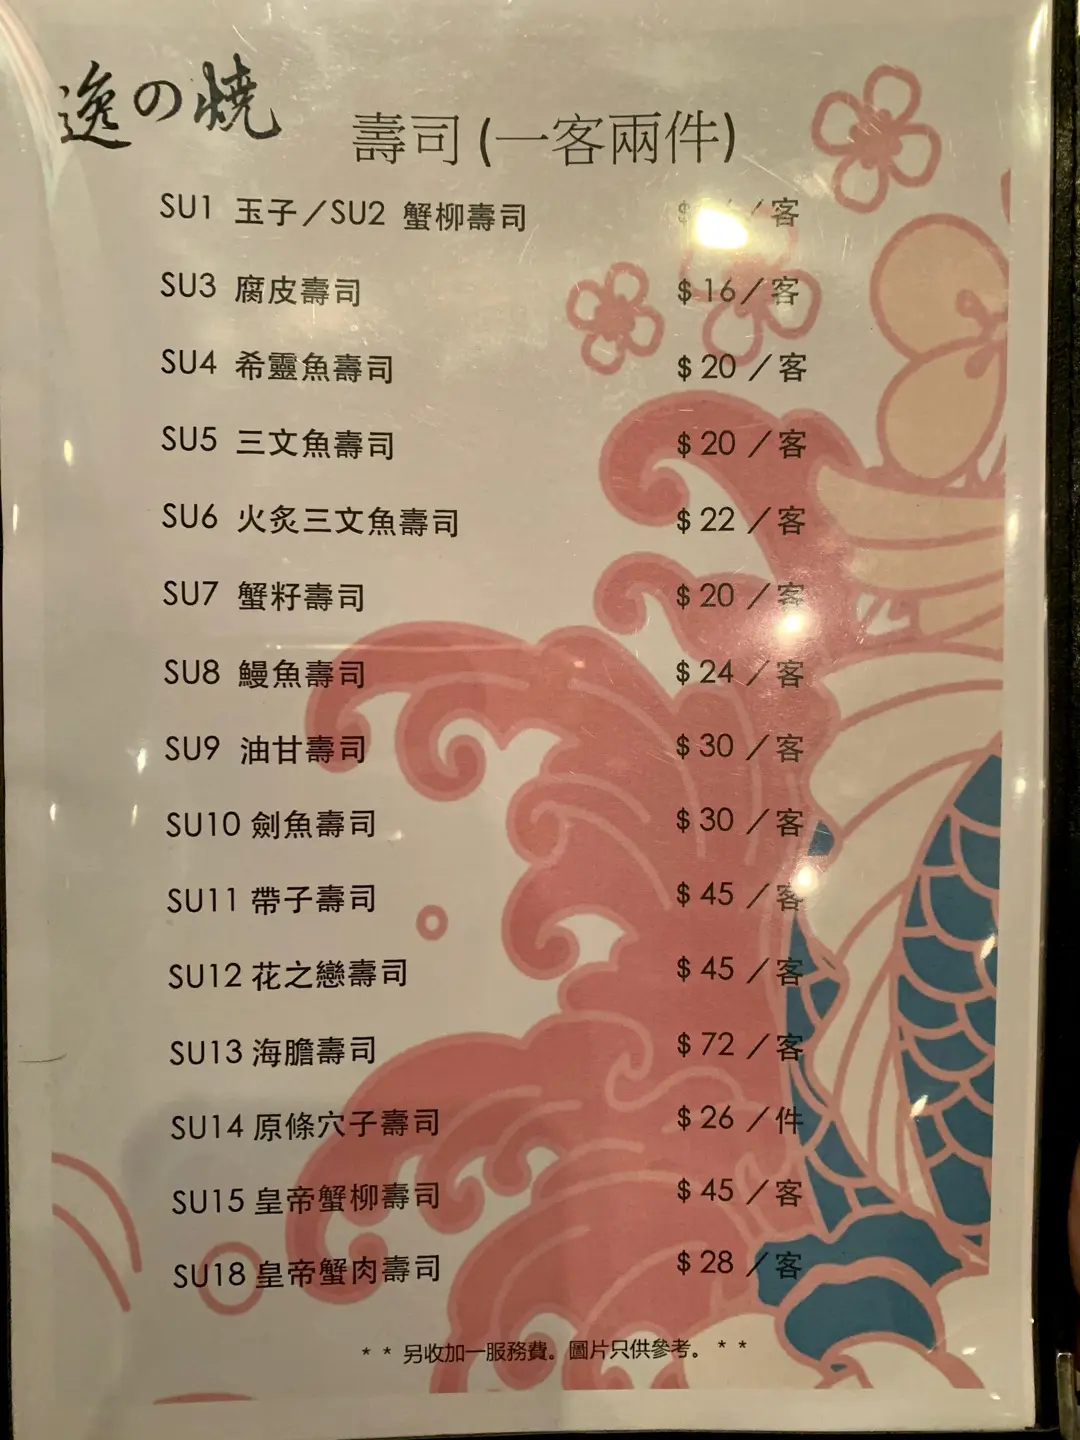 逸の燒
壽司 (一客兩件)
SU1 玉子／SU2 蟹柳壽司 $ ／客
SU3 腐皮壽司 $16／客
SU4 希靈魚壽司 $20／客
SU5 三文魚壽司 $20／客
SU6 火炙三文魚壽司 $22／客
SU7 蟹籽壽司 $20／客
SU8 鰻魚壽司 $24／客
SU9 油甘壽司 $30／客
SU10 劍魚壽司 $30／客
SU11 帶子壽司 $45／客
SU12 花之戀壽司 $45／客
SU13 海膽壽司 $72／客
SU14 原條穴子壽司 $26／件
SU15 皇帝蟹柳壽司 $45／客
SU18 皇帝蟹肉壽司 $28／客
* * 另收加一服務費。圖片只供參考。 * *